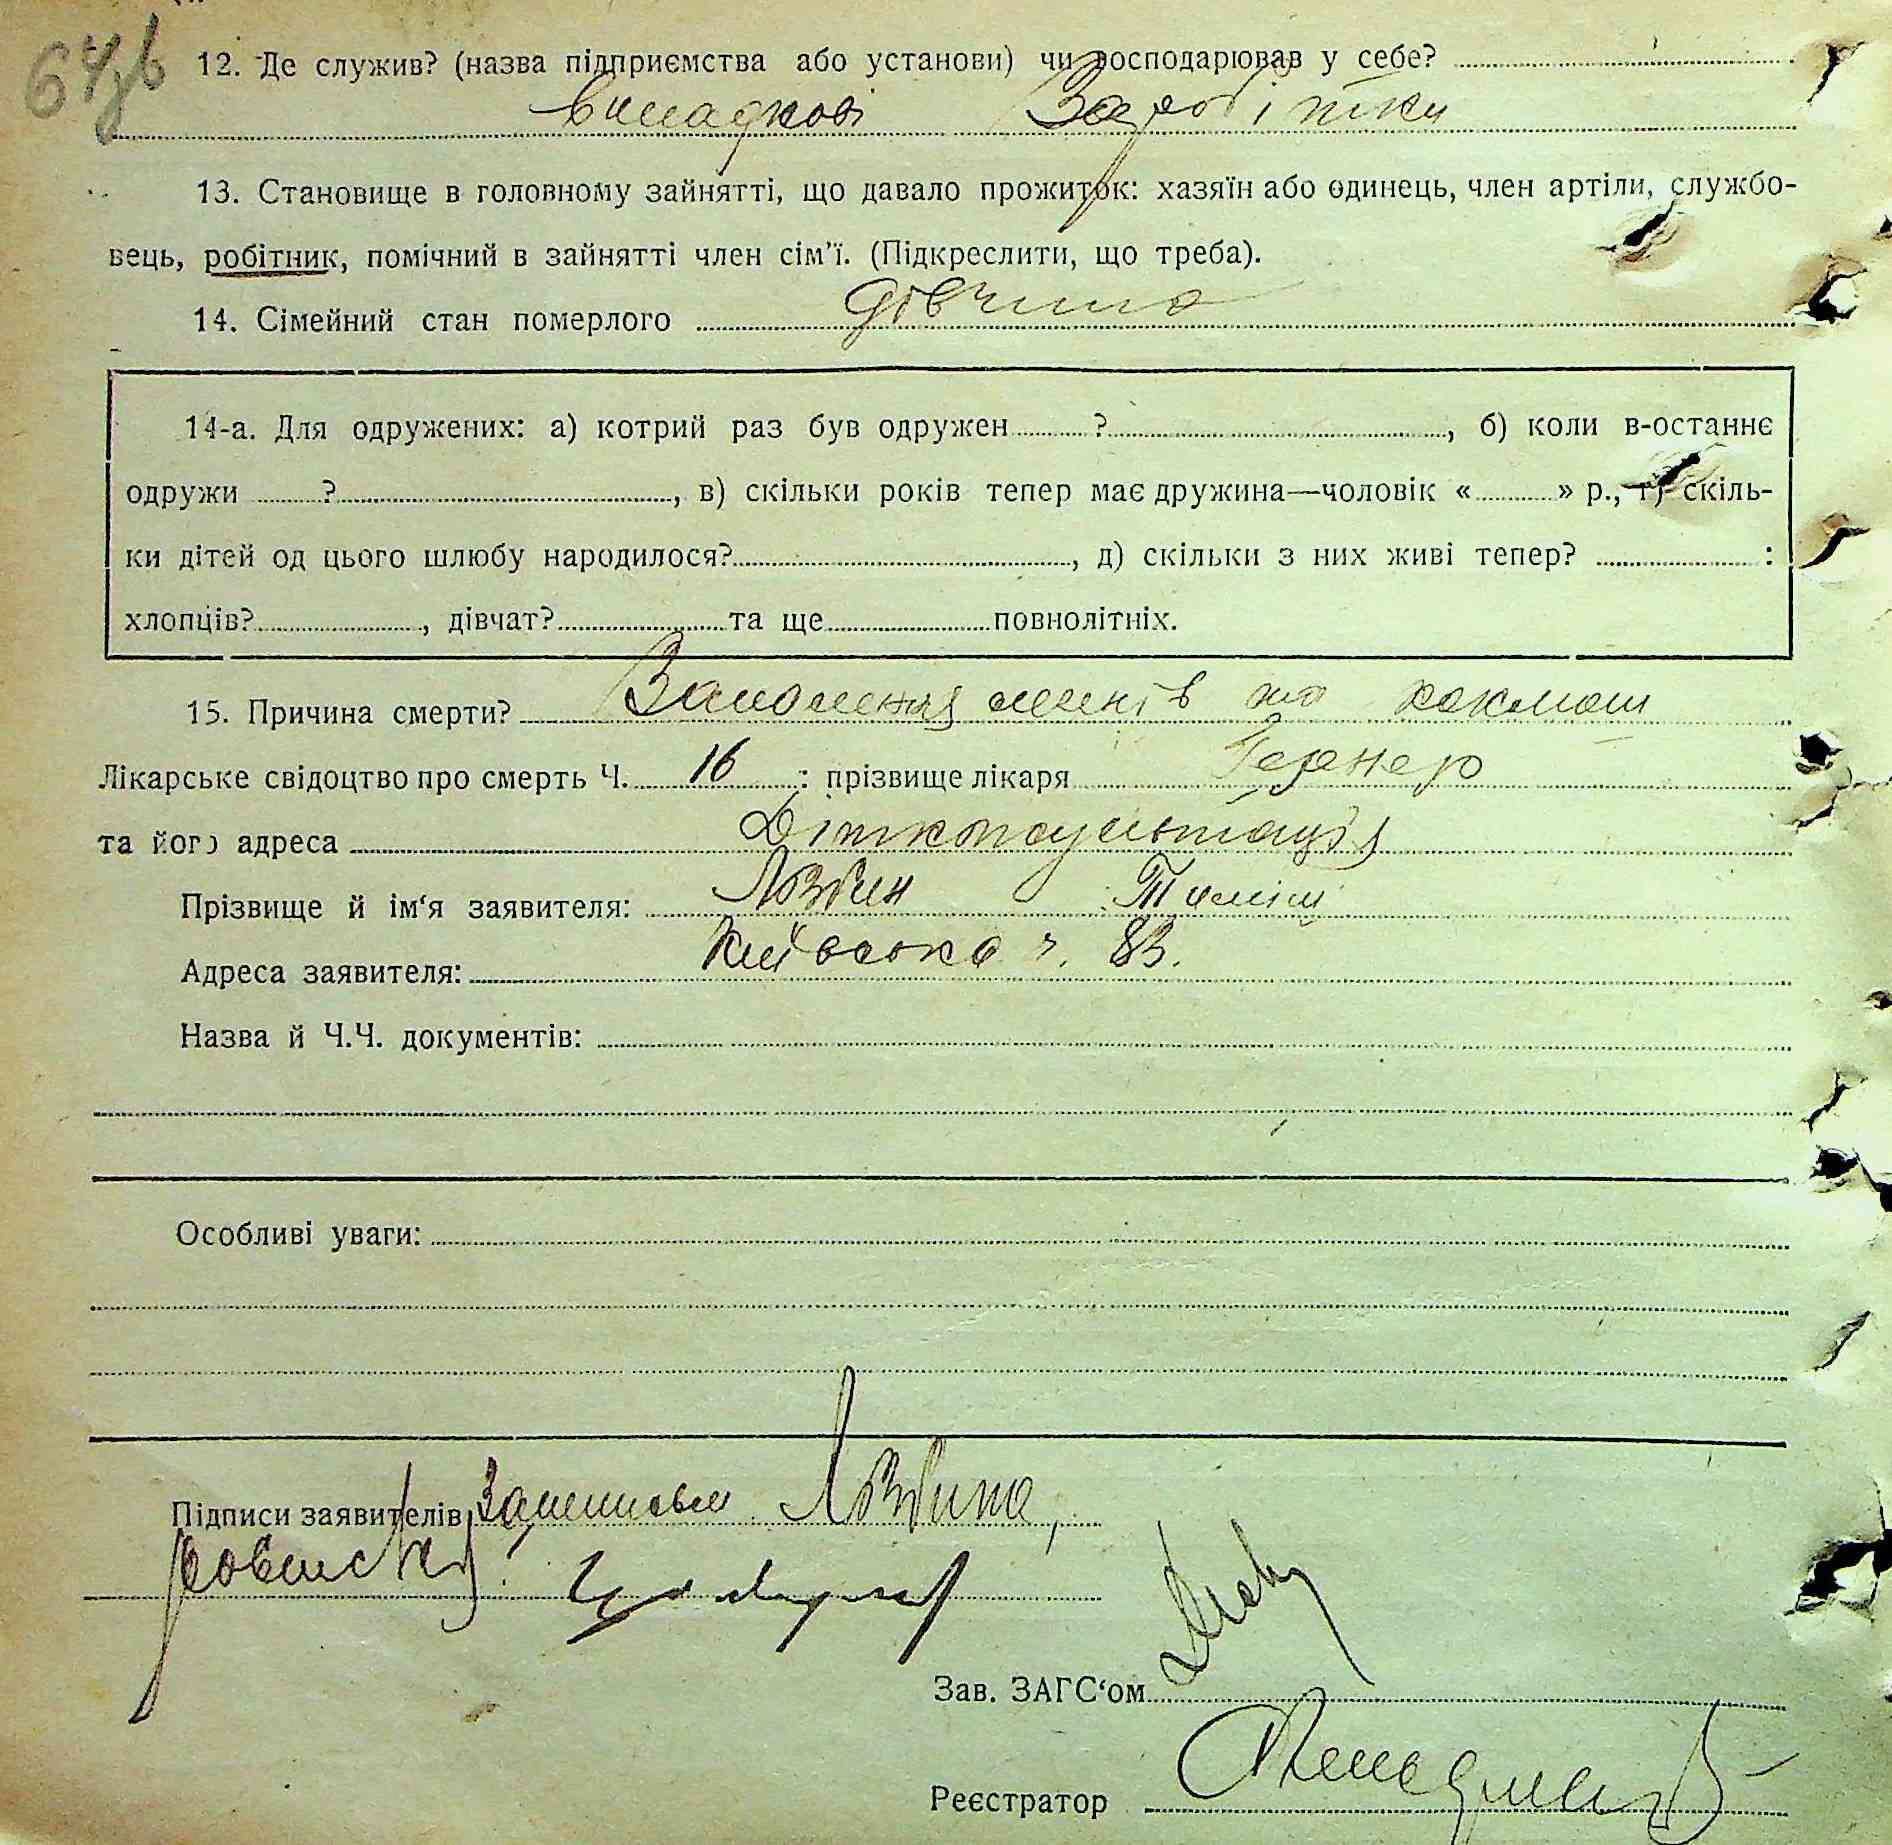 64зв
12. Де служив? (назва підприємства або установи) чи господарював у себе?
випадкові Заробітки
13. Становище в головному зайнятті, що давало прожиток: хазяїн або одинець, член артіли, службо-
вець, робітник, помічний в зайнятті член сім'ї. (Підкреслити, що треба).
14. Сімейний стан померлого дівчина
14-а. Для одружених: а) котрий раз був одружен ?, б) коли в-останнє
одружи ?, в) скільки років тепер має дружина—чоловік « » р., г) скіль-
ки дітей од цього шлюбу народилося?, д) скільки з них живі тепер? :
хлопців?, дівчат? та ще повнолітніх.
15. Причина смерти? Запалення легенів на коклюш
Лікарське свідоцтво про смерть Ч. 16 : прізвище лікаря
та його адреса Дітконсультація
Прізвище й ім'я заявителя: Лозбин
Адреса заявителя: Київська ч. 83.
Назва й Ч.Ч. документів:
Особливі уваги:
Підписи заявителів
Зав. ЗАГС'ом
Реєстратор